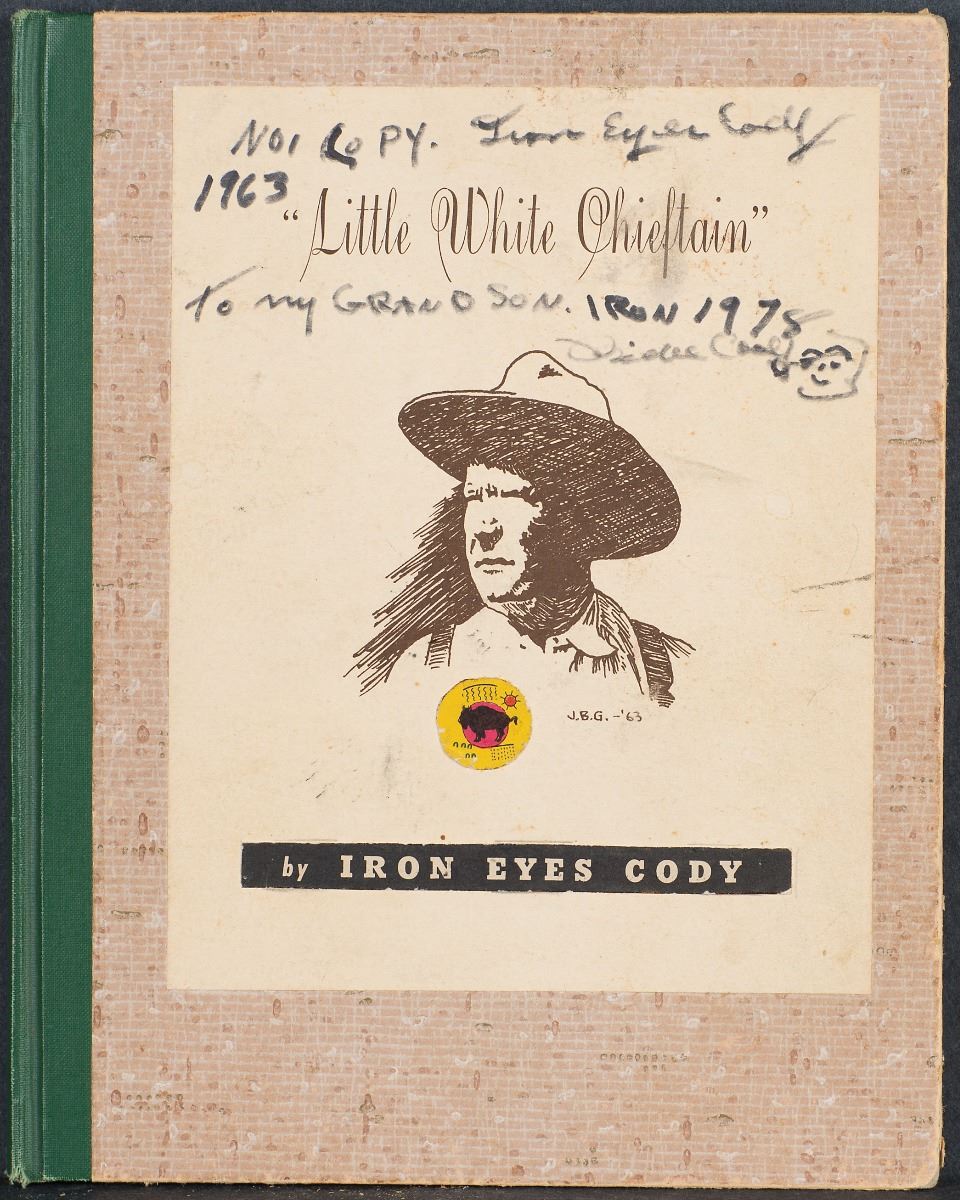 NO1 COPY. Iron Eyes Cody
1963
“Little White Chieftain”
To my GRANDSON. IRON 1978
Cody
J.B.G. -'63
by IRON EYES CODY